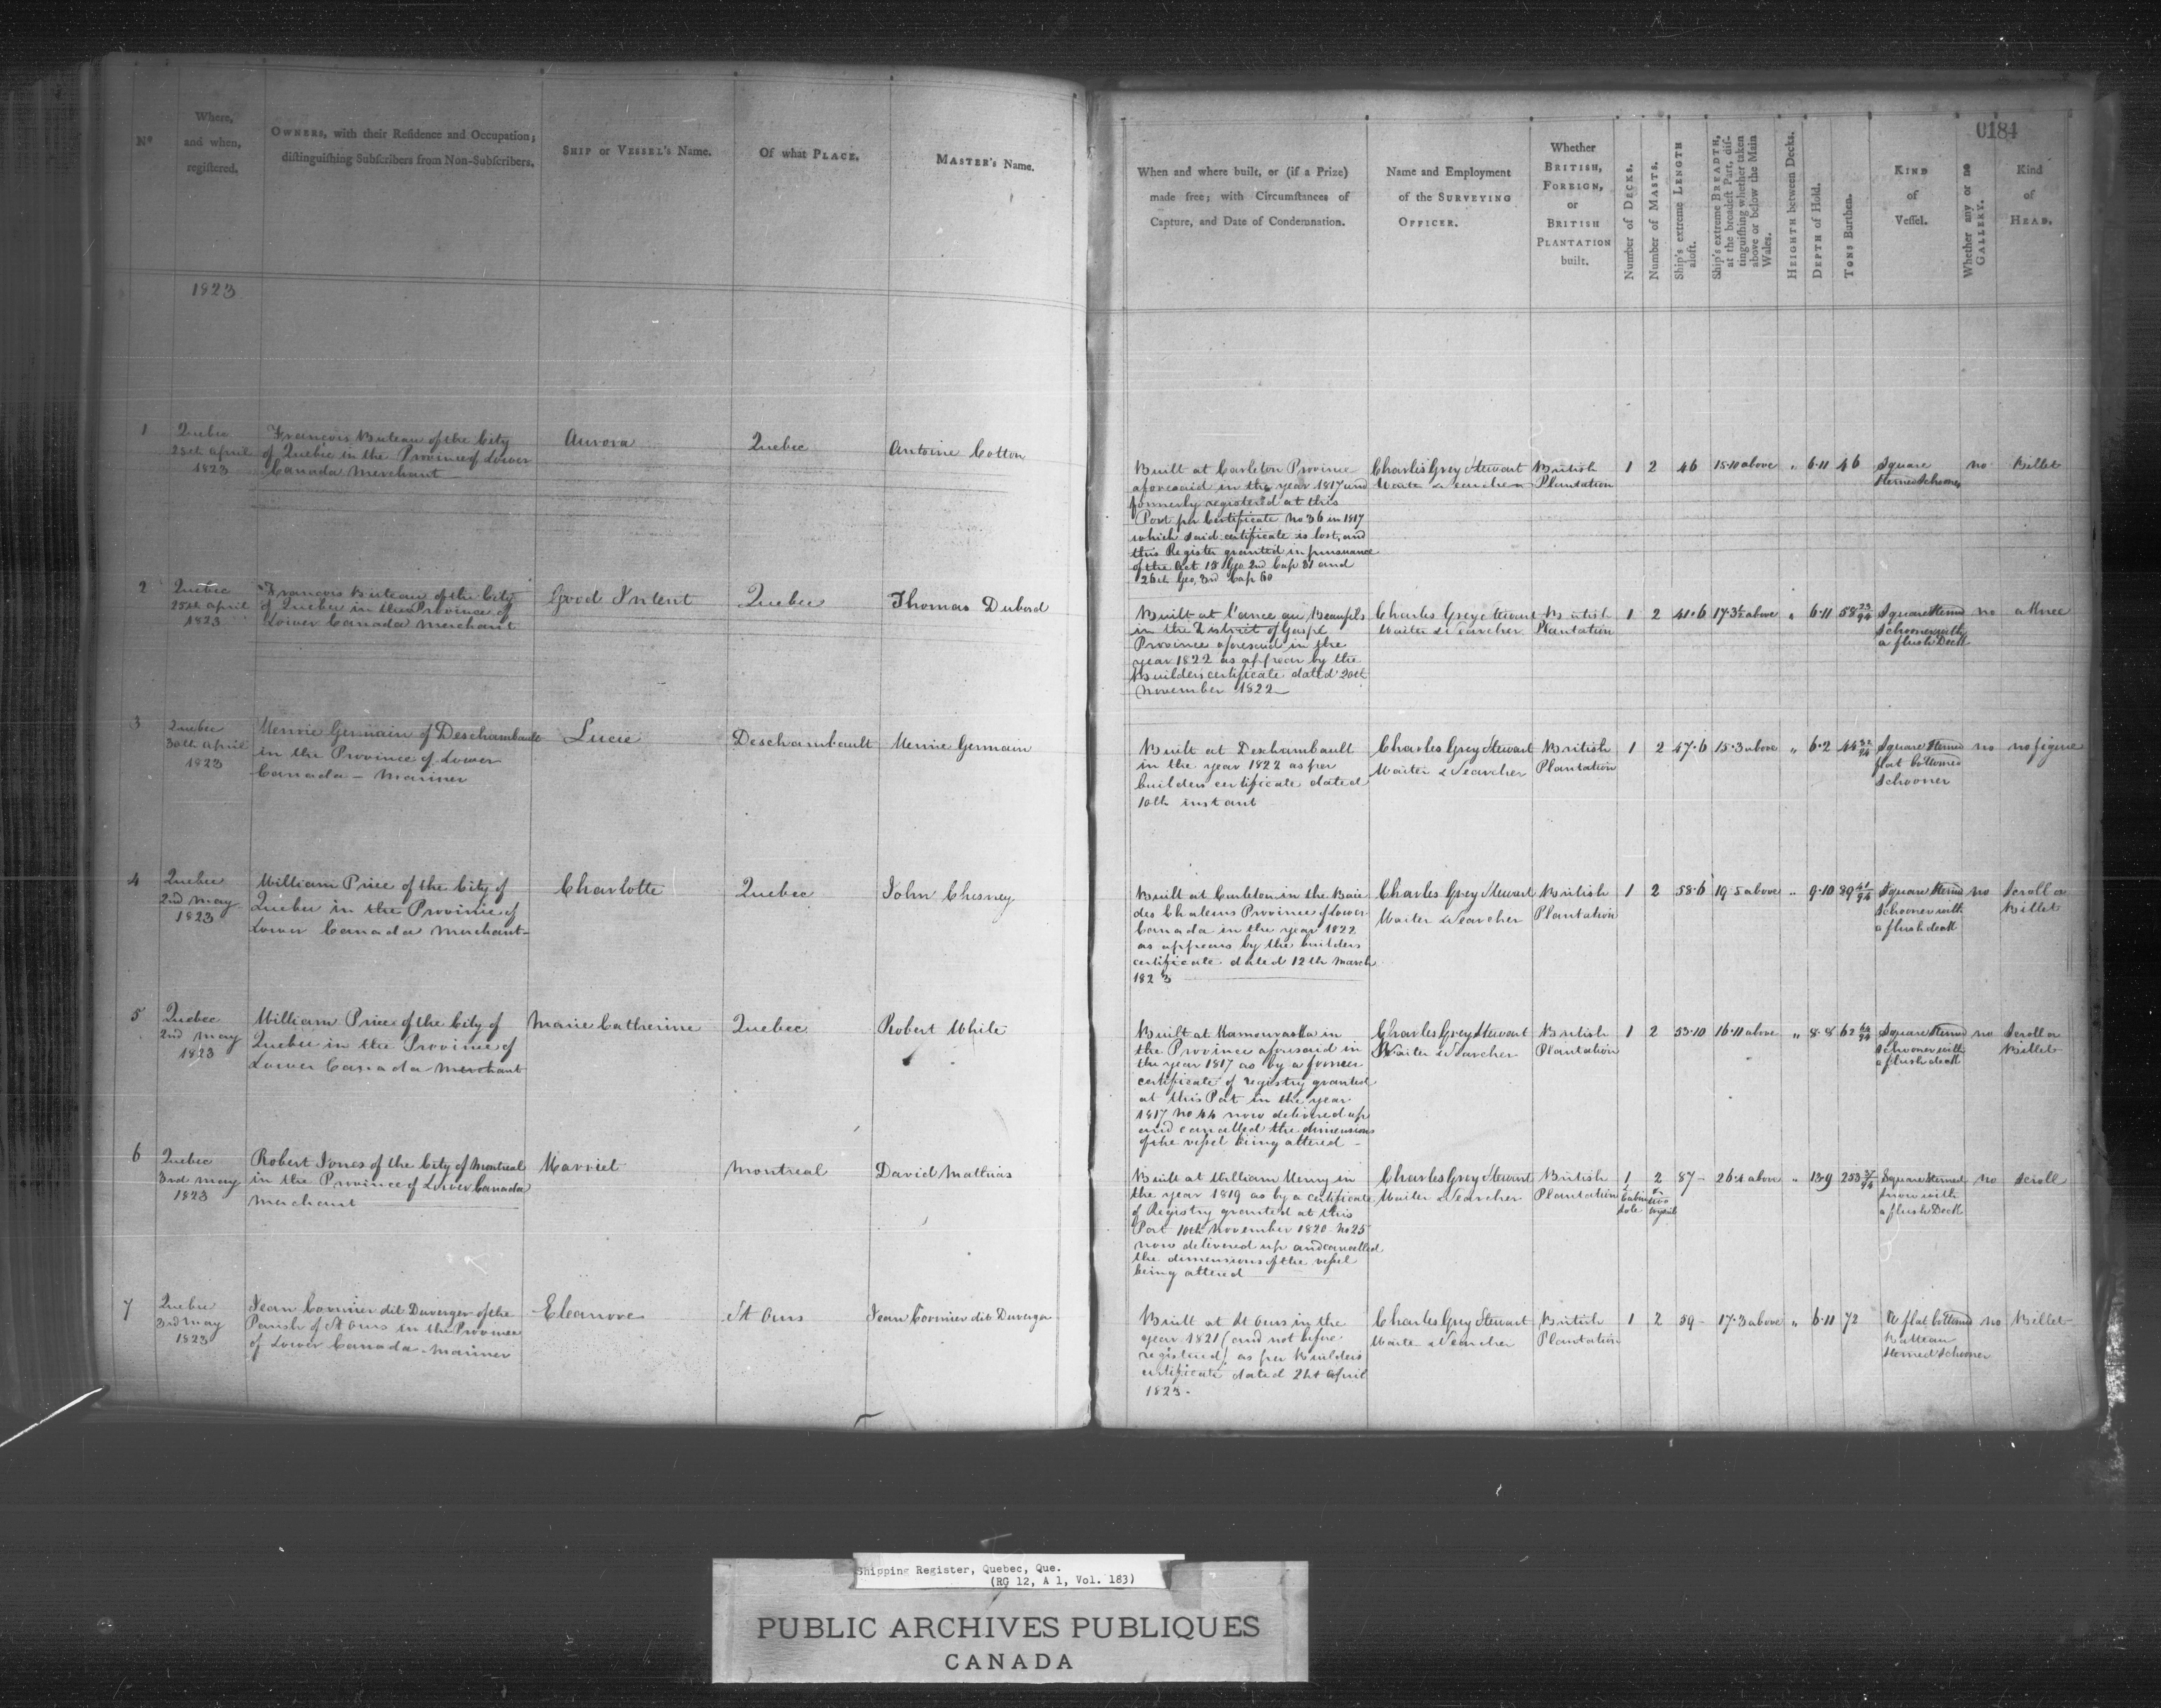 0184
Nº
Where,
and when,
registered.
OWNERS, with their Residence and Occupation;
distinguishing Subscribers from Non-Subscribers.
SHIP or VESSEL's Name.
Of what PLACE.
MASTER's Name.
When and where built, or (if a Prize)
made free; with Circumstances of
Capture, and Date of Condemnation.
Name and Employment
of the SURVEYING
OFFICER.
Whether
BRITISH,
FOREIGN,
or
BRITISH
PLANTATION
built.
Number of DECKS.
Number of MASTS.
Ship's extreme LENGTH
aloft.
Ship's extreme BREADTH,
at the broadest Part, dis-
tinguishing whether taken
above or below the Main
Wales.
HEIGHTH between Decks.
DEPTH of Hold.
TONS Burthen.
KIND
of
Vessel.
Whether any or no
GALLERY.
Kind
of
HEAD.
1823
1
Quebec
25th April
1823
Francois Buteau of the City
of Quebec in the Province of Lower
Canada Merchant
Aurora
Quebec
Antoine Cotton
Built at Carleton Province
aforesaid in the year 1817 and
formerly registered at this
Port per Certificate No 36 in 1817
which said certificate is lost, and
this Register granted in pursuance
of the Act 15 Geo 2nd Cap 31 and
26th Geo, 3rd Cap 60
Charles Grey Stewart
Waiter & Searcher
British
Plantation
1 2 46 15·10 above " 6·11 46
Square
Sterned Schooner
no
Billet
2
Quebec
25th April
1823
Francois Buteau of the City
of Quebec in the Province of
Lower Canada Merchant
Good Intent
Quebec
Thomas Dubord
Built at l'ance au Beaufils
in the District of Gaspé
Province aforesaid in the
year 1822 as appear by the
Builders certificate dated 20th
November 1822
Charles Grey Stewart
Waiter & Searcher
British
Plantation
1 2 41·6 17·3½ above " 6·11 58 23/94
Square Sterned
Schooner with
a flush Deck
no
a Knee
3
Quebec
30th April
1823
Henrie Germain of Deschambault
in the Province of Lower
Canada - Mariner
Lucie
Deschambault
Henrie Germain
Built at Deschambault
in the year 1822 as per
builders certificate dated
10th instant
Charles Grey Stewart
Waiter & Searcher
British
Plantation
1 2 47·6 15·3 above " 6·2
Square Sterned
flat bottomed
Schooner
no
no figure
4
Quebec
2nd May
1823
William Price of the City of
Quebec in the Province of
Lower Canada Merchant
Charlotte
Quebec
John Chesney
Built at Carleton in the Baie
des Chaleurs Province of Lower
Canada in the year 1822
as appears by the builders
certificate dated 12th March
1823
Charles Grey Stewart
Waiter & Searcher
British
Plantation
1 2 58·6 19·5 above " 9·10 89 41/94
Square Sterned
Schooner with
a flush deck
no
Scroll or
Billet
5
Quebec
2nd May
1823
William Price of the City of
Quebec in the Province of
Lower Canada Merchant
Marie Catherine
Quebec
Robert White
Built at Kamouraska in
the Province aforesaid in
the year 1817 as by a former
certificate of registry granted
at this Port in the year
1817 No 44 now delivered up
and cancelled the dimensions
of the vessel being altered
Charles Grey Stewart
Waiter & Searcher
British
Plantation
1 2 53·10 16·11 above " 8·8 62 64/94
Square Sterned
Schooner with
a flush deck
no
Scroll or
Billet
6
Quebec
3rd May
1823
Robert Jones of the City of Montreal
in the Province of Lower Canada
Merchant
Harriet
Montreal
David Mathias
Built at William Henry in
the year 1819 as by a certificate
of Registry granted at this
Port 10th November 1820 No 25
now delivered up and cancelled
the dimensions of the vessel
being altered
Charles Grey Stewart
Waiter & Searcher
British
Plantation
1 2 87 26·4 above " 13·9 253 37/94
Square Sterned
snow with
a flush Deck
no
Scroll
7
Quebec
3rd May
1823
Jean Cormier dit Duverger of the
Parish of St Ours in the Province
of Lower Canada Mariner
Eleanore
St Ours
Jean Cormier dit Duverger
Built at St Ours in the
year 1821 (and not before
registered) as per Builders
certificate dated 21st April
1823
Charles Grey Stewart
Waiter & Searcher
British
Plantation
1 2 59 17·3 above " 6·11 72
A flat bottomed
Batteau
Sterned Schooner
no
Billet
Shipping Register, Quebec, Que.
(RG 12, A 1, Vol. 183)
PUBLIC ARCHIVES PUBLIQUES
CANADA